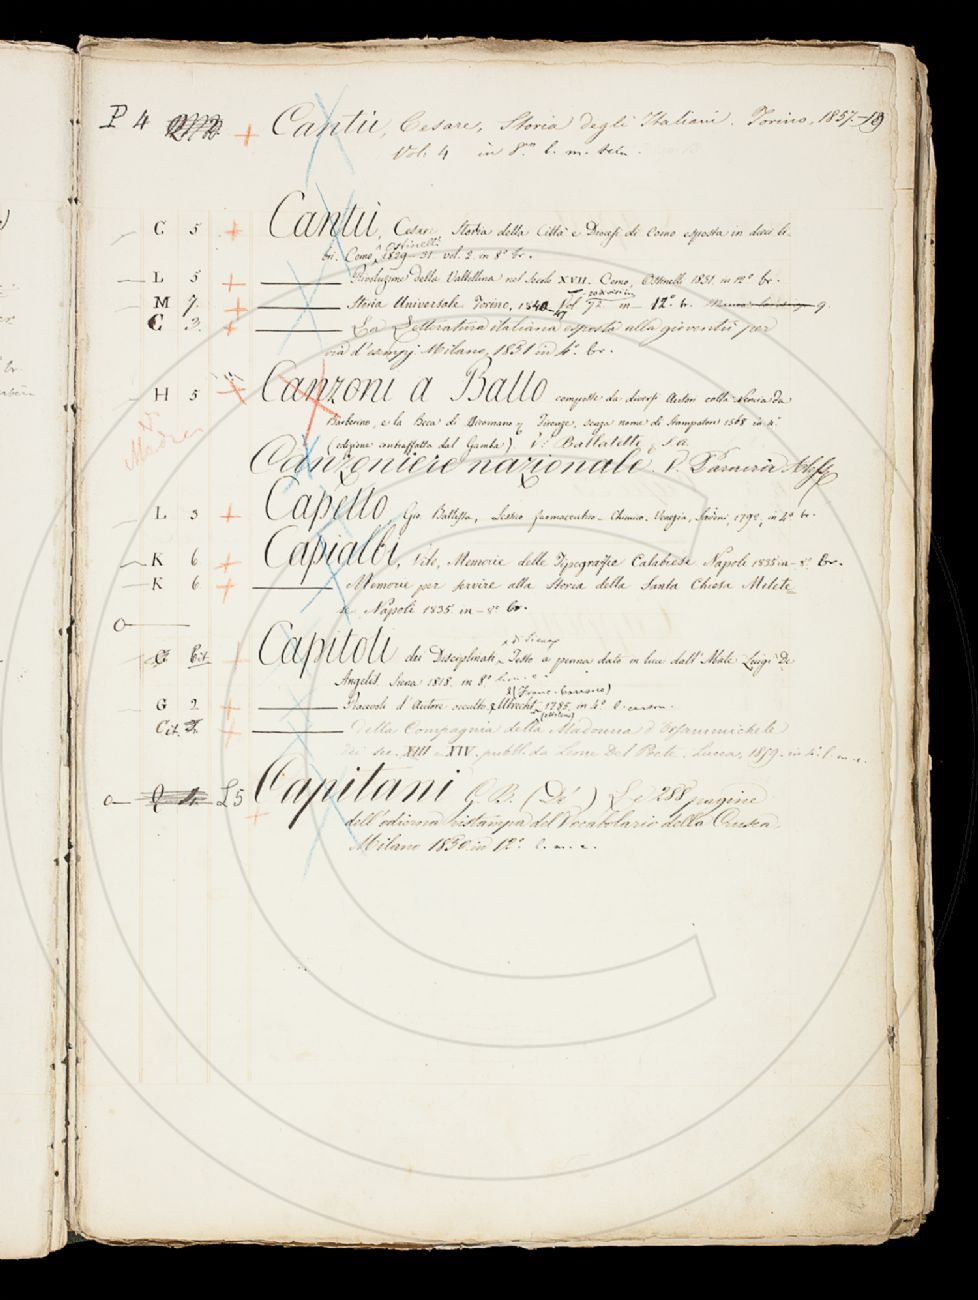 P 4 + Cantù, Cesare, Storia degli Italiani. Torino, 1857-59
Vol. 4 in 8.vo l. m. tela.
C 5 + Cantù, Cesare Storia della Città e Diocesi di Como esposta in dieci li-
bri. Como, Ostinelli 1829-31 vol. 2. in 8° br.
L 5 + ——— Rivoluzione della Valtellina nel Secolo XVII. Como, Ostinelli 1831. in 12° br.
M 7. + ——— Storia Universale Torino, 1840-47 Vol 72 in 12° br.
C 3. + ——— La Letteratura italiana esposta alla gioventù per
via d'esempj. Milano, 1851 in 4° br.
H 5 + Canzoni a Ballo composte da diversi Autori colla Nencia da
Barberino, e la Beca di Dicomano Firenze, senza nome di Stampatore 1568 in 4°
(edizione contraffatta dal Gamba) V: Ballatette
Canzoniere nazionale. V.
L 3 + Capello Gio. Battista, Lessico farmaceutico-Chimico. Venezia, 1792, in 4° br.
K 6 + Capialbi, Vito, Memorie delle Tipografie Calabrese Napoli 1835 in-8° br.
K 6 + ——— Memorie per servire alla Storia della Santa Chiesa Milete=
se Napoli 1835 in-8° br.
Cit. + Capitoli dei Disciplinati di Siena, Testo a penna dato in luce dall'Abate Luigi De
Angelis Siena 1818. in 8°
G 2 + ——— Piacevoli d'Autore occulto, Utrecht 1785, in 4°
Cit. + ——— della Compagnia della Madonna d'Orsammichele
dei sec. XIII e XIV. pubbl. da Leone Del Prete. Lucca, 1859. in 8°
Q 4 L5 + Capitani G. B. (De') Le 288 pagine
dell'odierna ristampa del Vocabolario della Crusca.
Milano 1850 in 12°